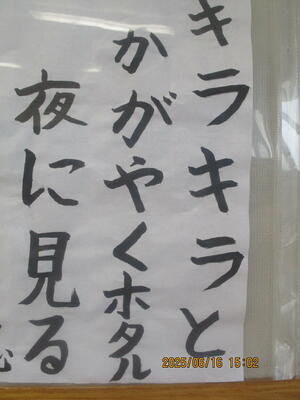 キラキラと
かがやくホタル
夜に見る
2025/06/16 15:02